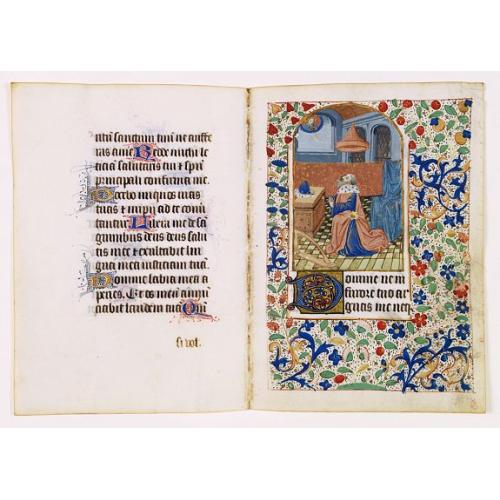 ritū sanctum tuū ne auffe
ras a me Redde michi le
ticiā salutaris tui & spū
principali confirma me
Docebo iniquos uias
tuas & impii ad te conū
tentur Libera me de sā
guinibus deus deus salu
tis mee & exultabit lin
gua mea iusticiam tuā
Domine labia mea a
peries Et os meū annūn
ciabit laudem tuā Qm̄
si vol.
Domine ne in
furore tuo ar
guas me neq